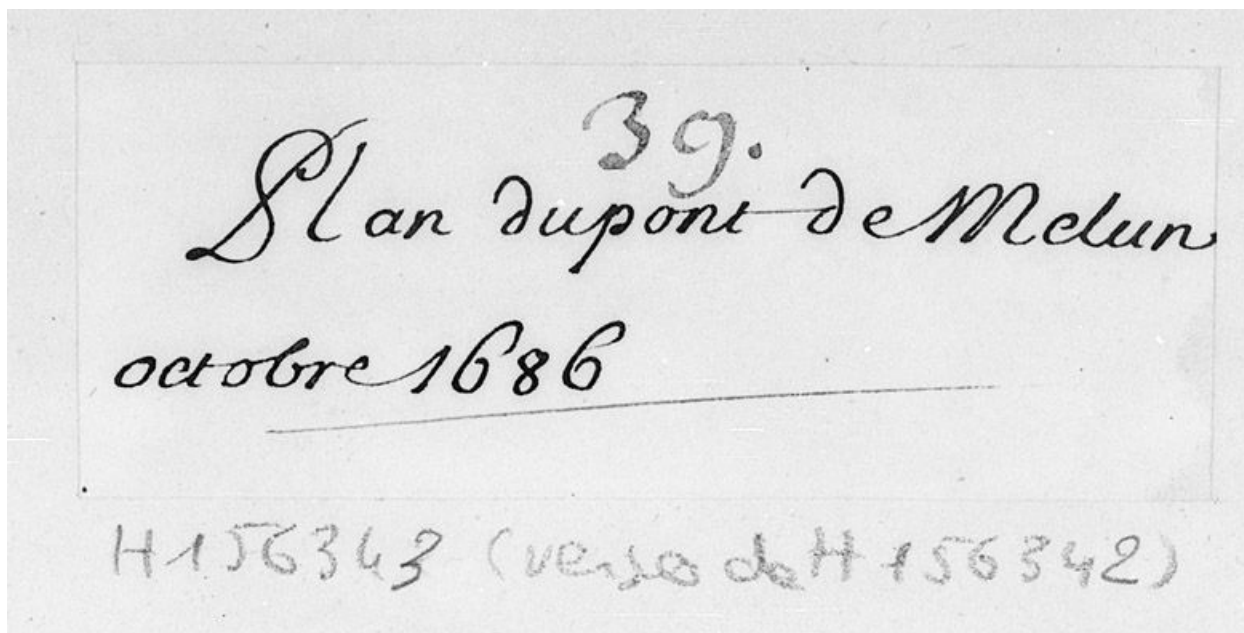 39.
Plan dupont de Melun
octobre 1686
H 156343 (verso de H 156342)